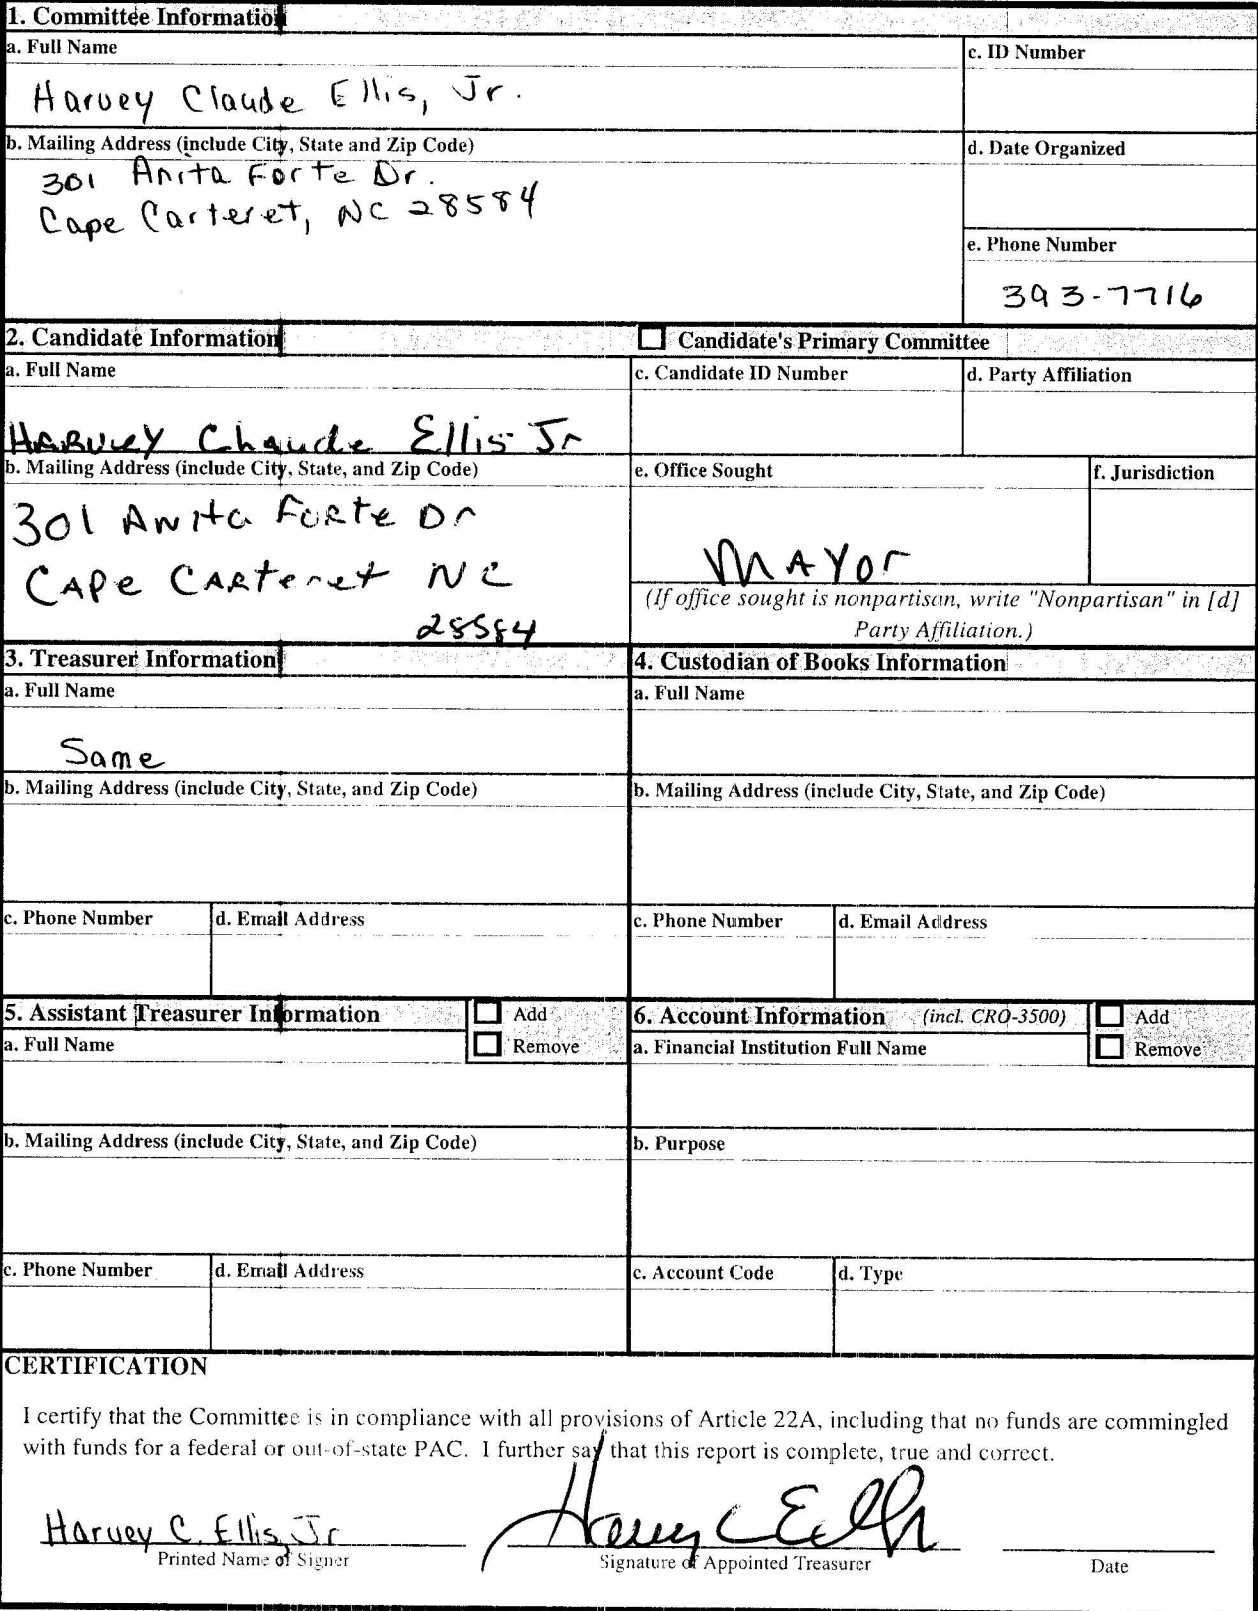 1. Committee Information
a. Full Name
Harvey Claude Ellis, Jr.
c. ID Number
b. Mailing Address (include City, State and Zip Code)
301 Anita Forte Dr.
Cape Carteret, NC 28584
d. Date Organized
e. Phone Number
393-7716
2. Candidate Information
Candidate's Primary Committee
a. Full Name
Harvey Claude Ellis Jr
c. Candidate ID Number
d. Party Affiliation
b. Mailing Address (include City, State, and Zip Code)
301 Anita Forte Dr
Cape Carteret NC
28584
e. Office Sought
Mayor
f. Jurisdiction
(If office sought is nonpartisan, write "Nonpartisan" in [d]
Party Affiliation.)
3. Treasurer Information
a. Full Name
Same
b. Mailing Address (include City, State, and Zip Code)
c. Phone Number
d. Email Address
4. Custodian of Books Information
a. Full Name
b. Mailing Address (include City, State, and Zip Code)
c. Phone Number
d. Email Address
5. Assistant Treasurer Information
Add
Remove
a. Full Name
b. Mailing Address (include City, State, and Zip Code)
c. Phone Number
d. Email Address
6. Account Information (incl. CRO-3500)
Add
Remove
a. Financial Institution Full Name
b. Purpose
c. Account Code
d. Type
CERTIFICATION
I certify that the Committee is in compliance with all provisions of Article 22A, including that no funds are commingled
with funds for a federal or out-of-state PAC. I further say that this report is complete, true and correct.
Harvey C. Ellis, Jr
Harvey C Ellis
Printed Name of Signer
Signature of Appointed Treasurer
Date